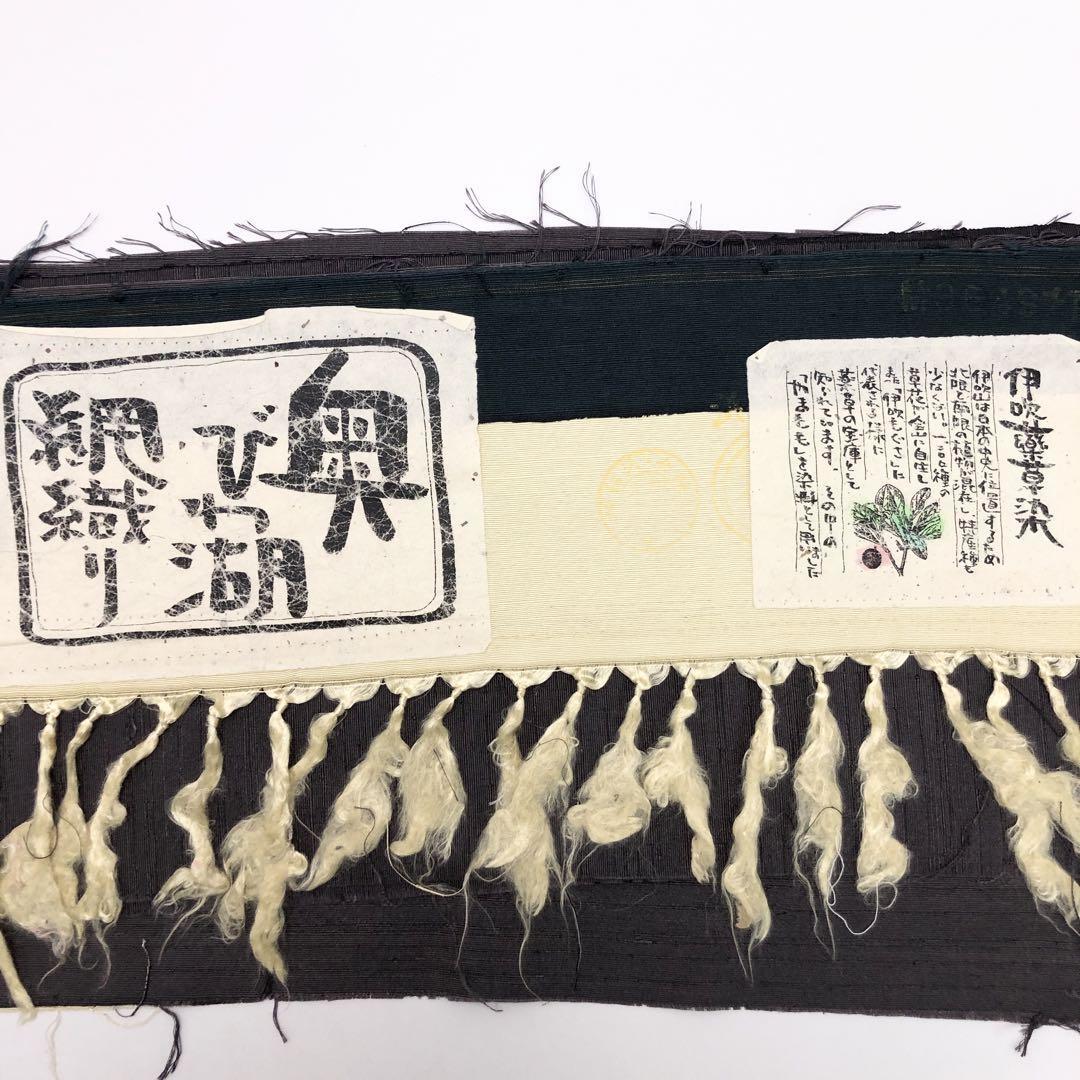 奥
びわ湖
網織り
伊吹藥草染
伊吹山は日本の中央に位置するため
北限と南限の植物が混在し、特産種も
少なくない。種の
草花が全山に自生し
また「伊吹もぐさ」に
代表される様に
藥草の宝庫として
知られています。その中の
を染料として用いました